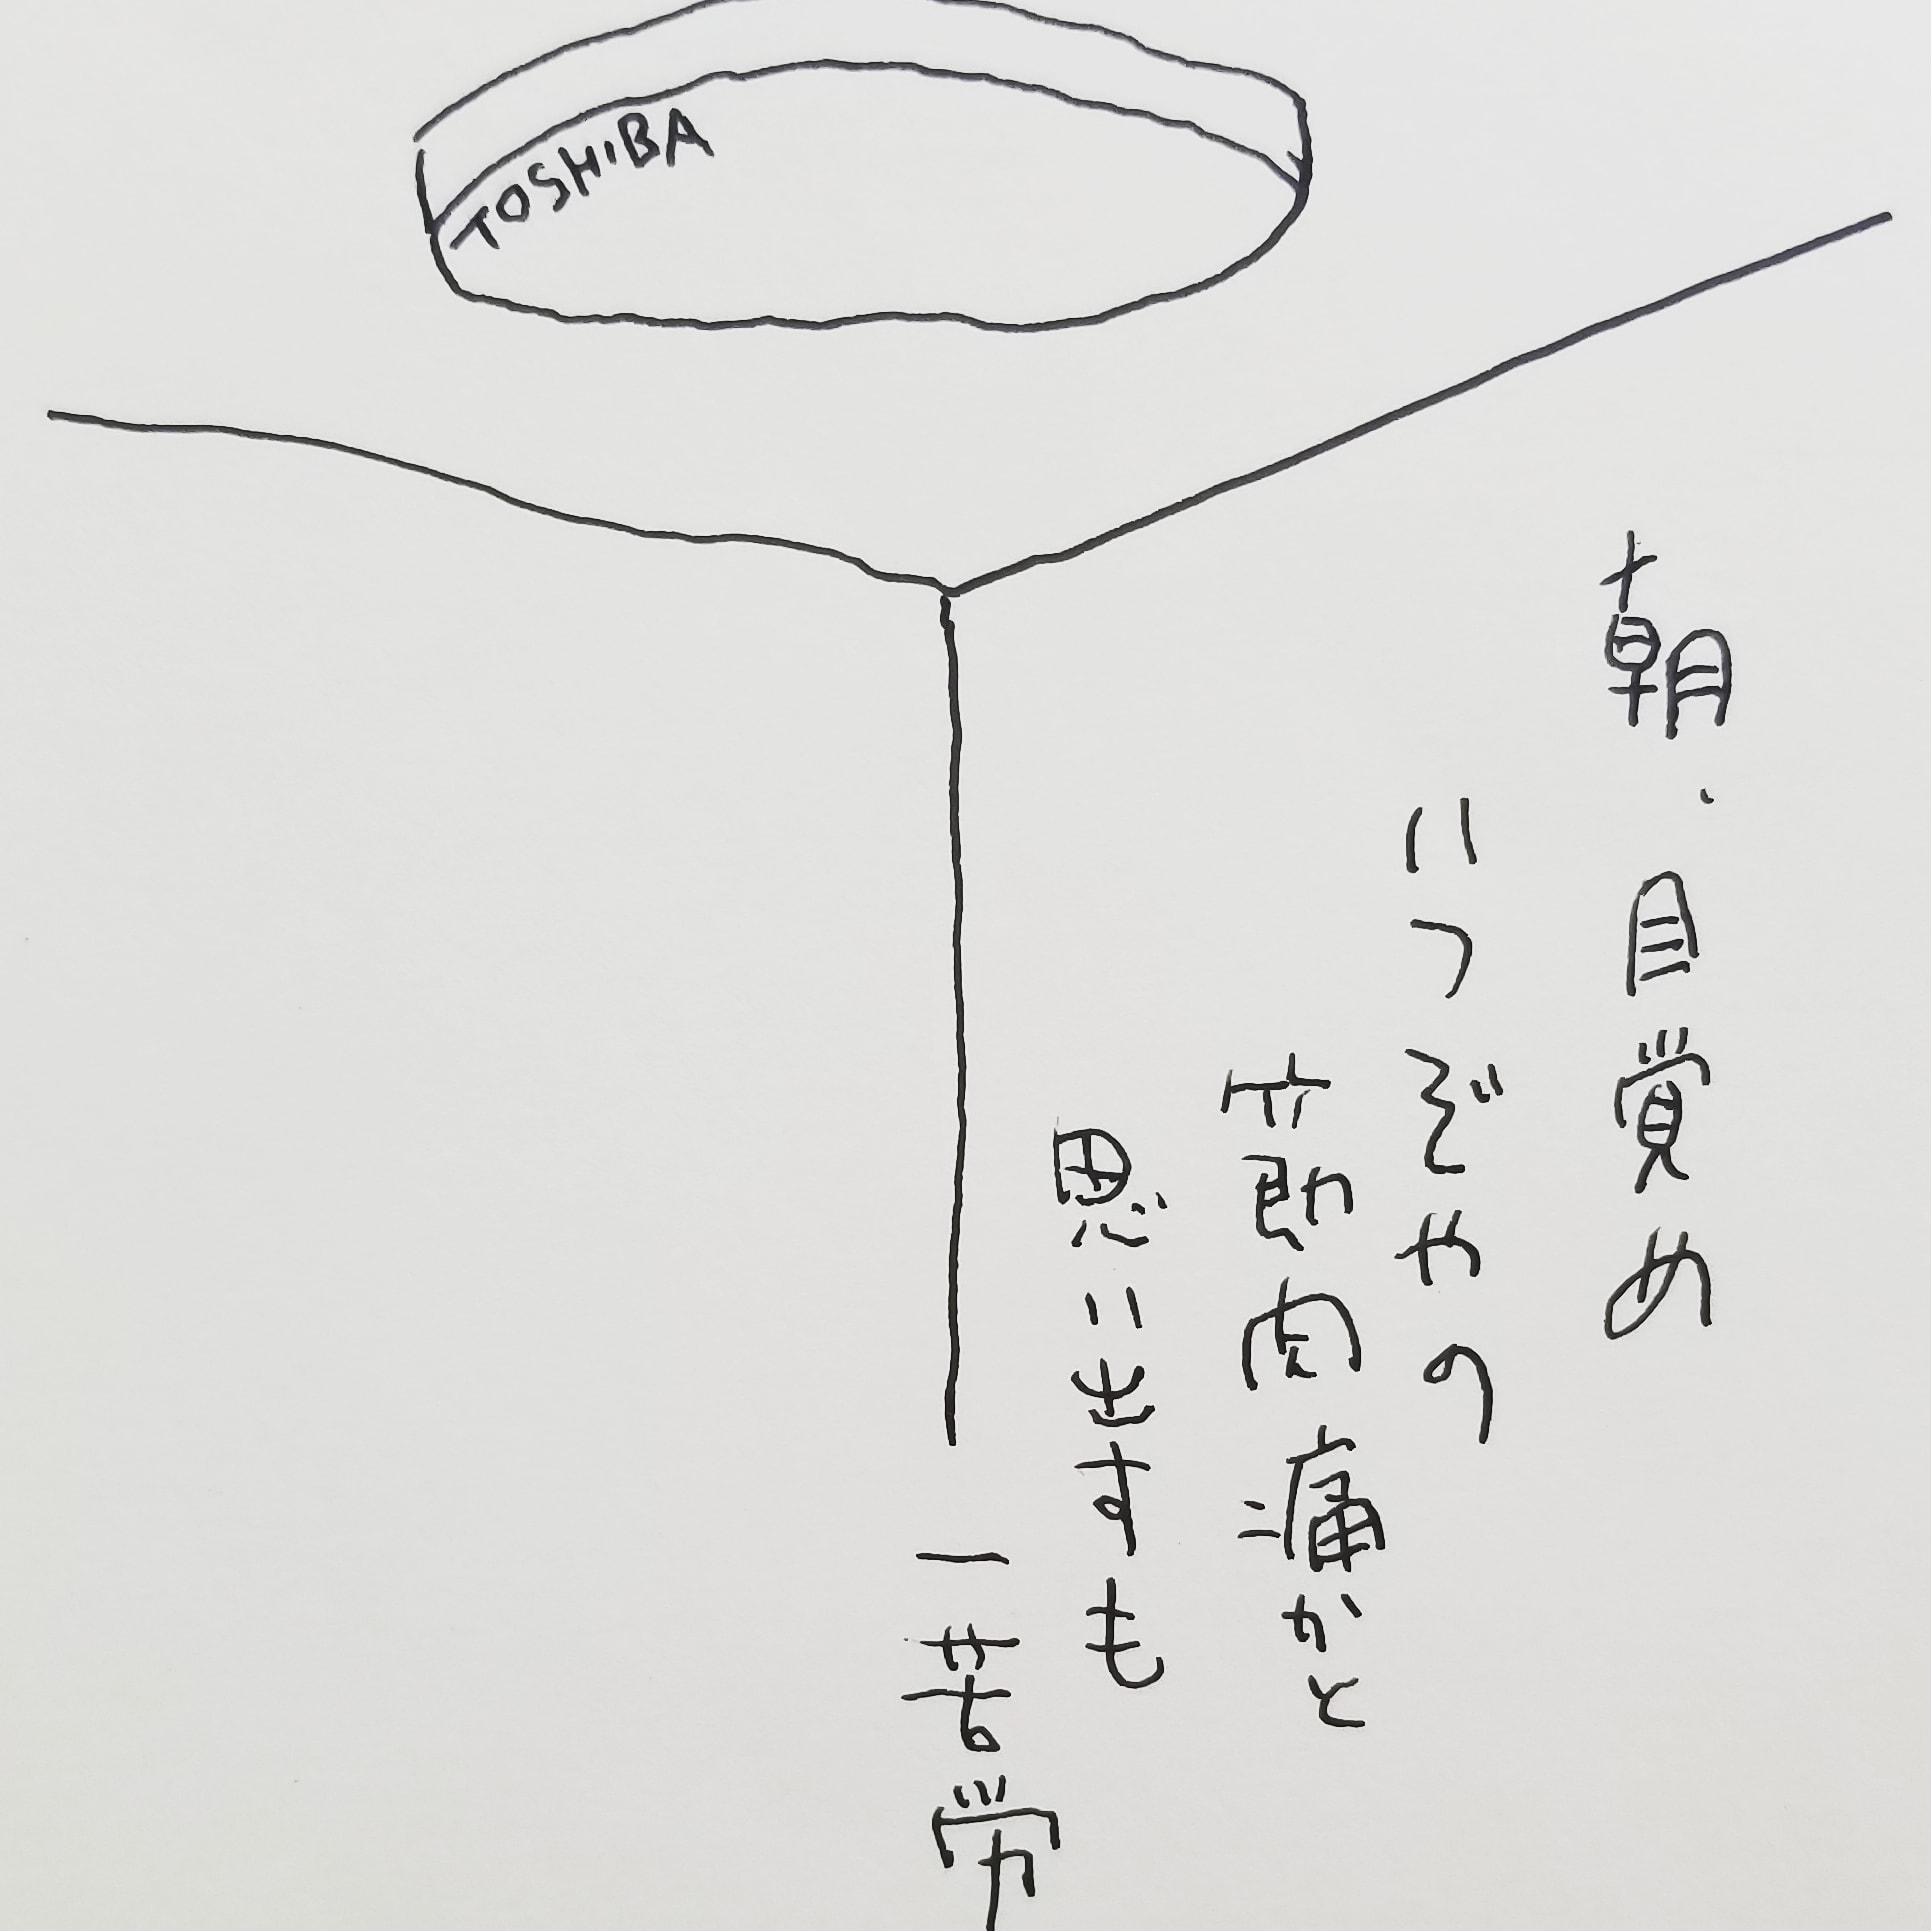 TOSHIBA
朝、目覚め
いつぞやの
筋肉痛かと
思い出すも
一苦労